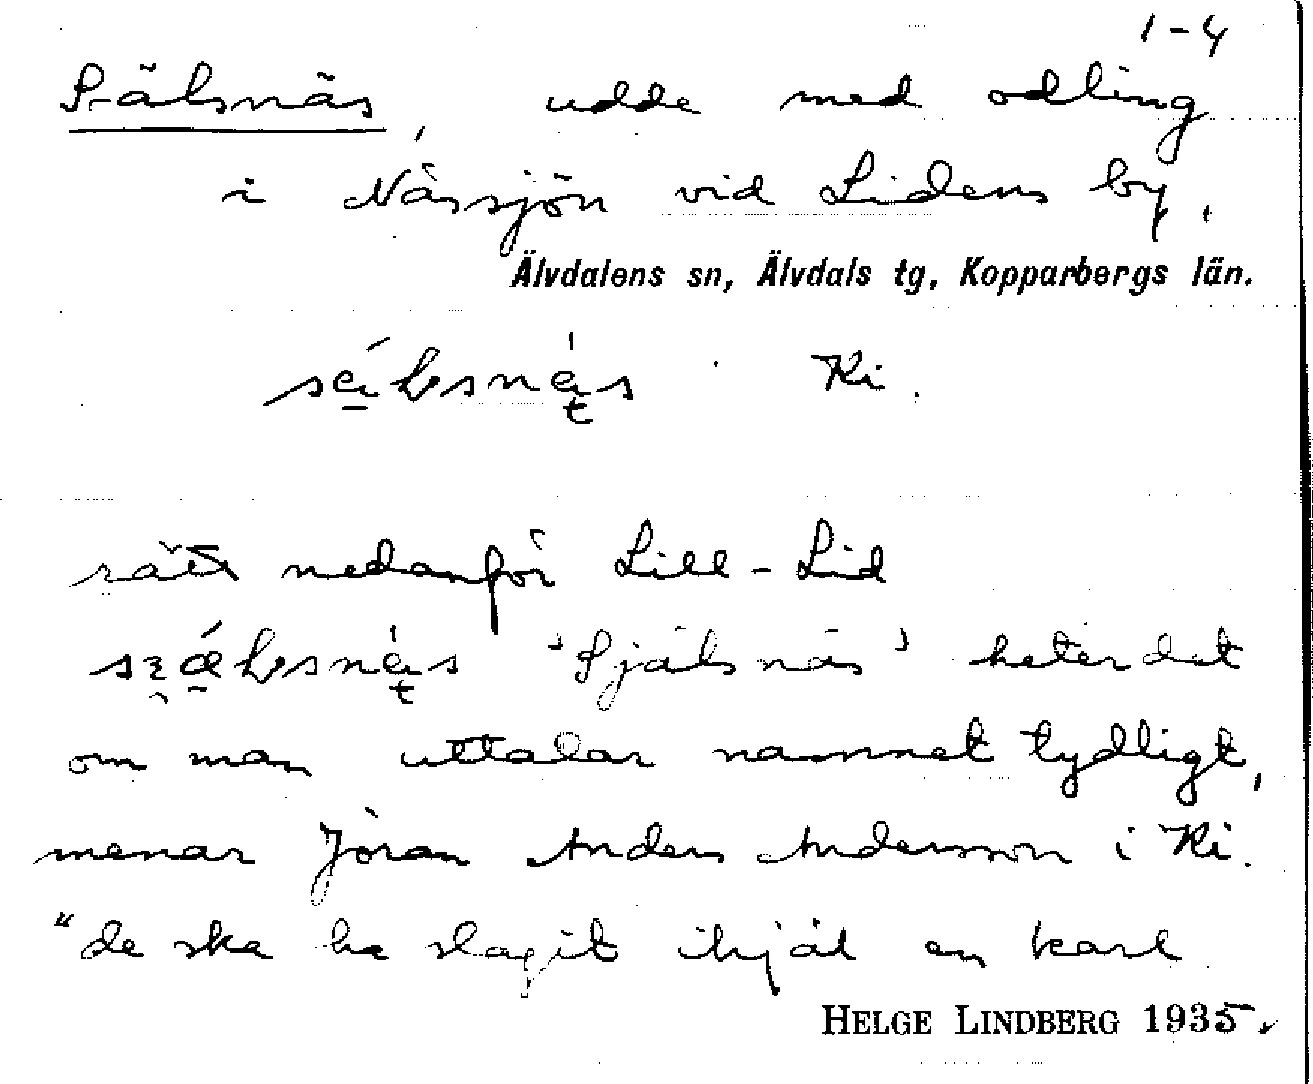 1-4
Sälsnäs, udde med odling
i Nässjön vid Lidens by,
Älvdalens sn, Älvdals tg, Kopparbergs län.
Ki.
rätt nedanför Lill-Lid
'Själsnäs' heter det
om man uttalar namnet tydligt,
menar Jöran Anders Andersson i Ki.
"de ska ha slagit ihjäl en karl
HELGE LINDBERG 1935.